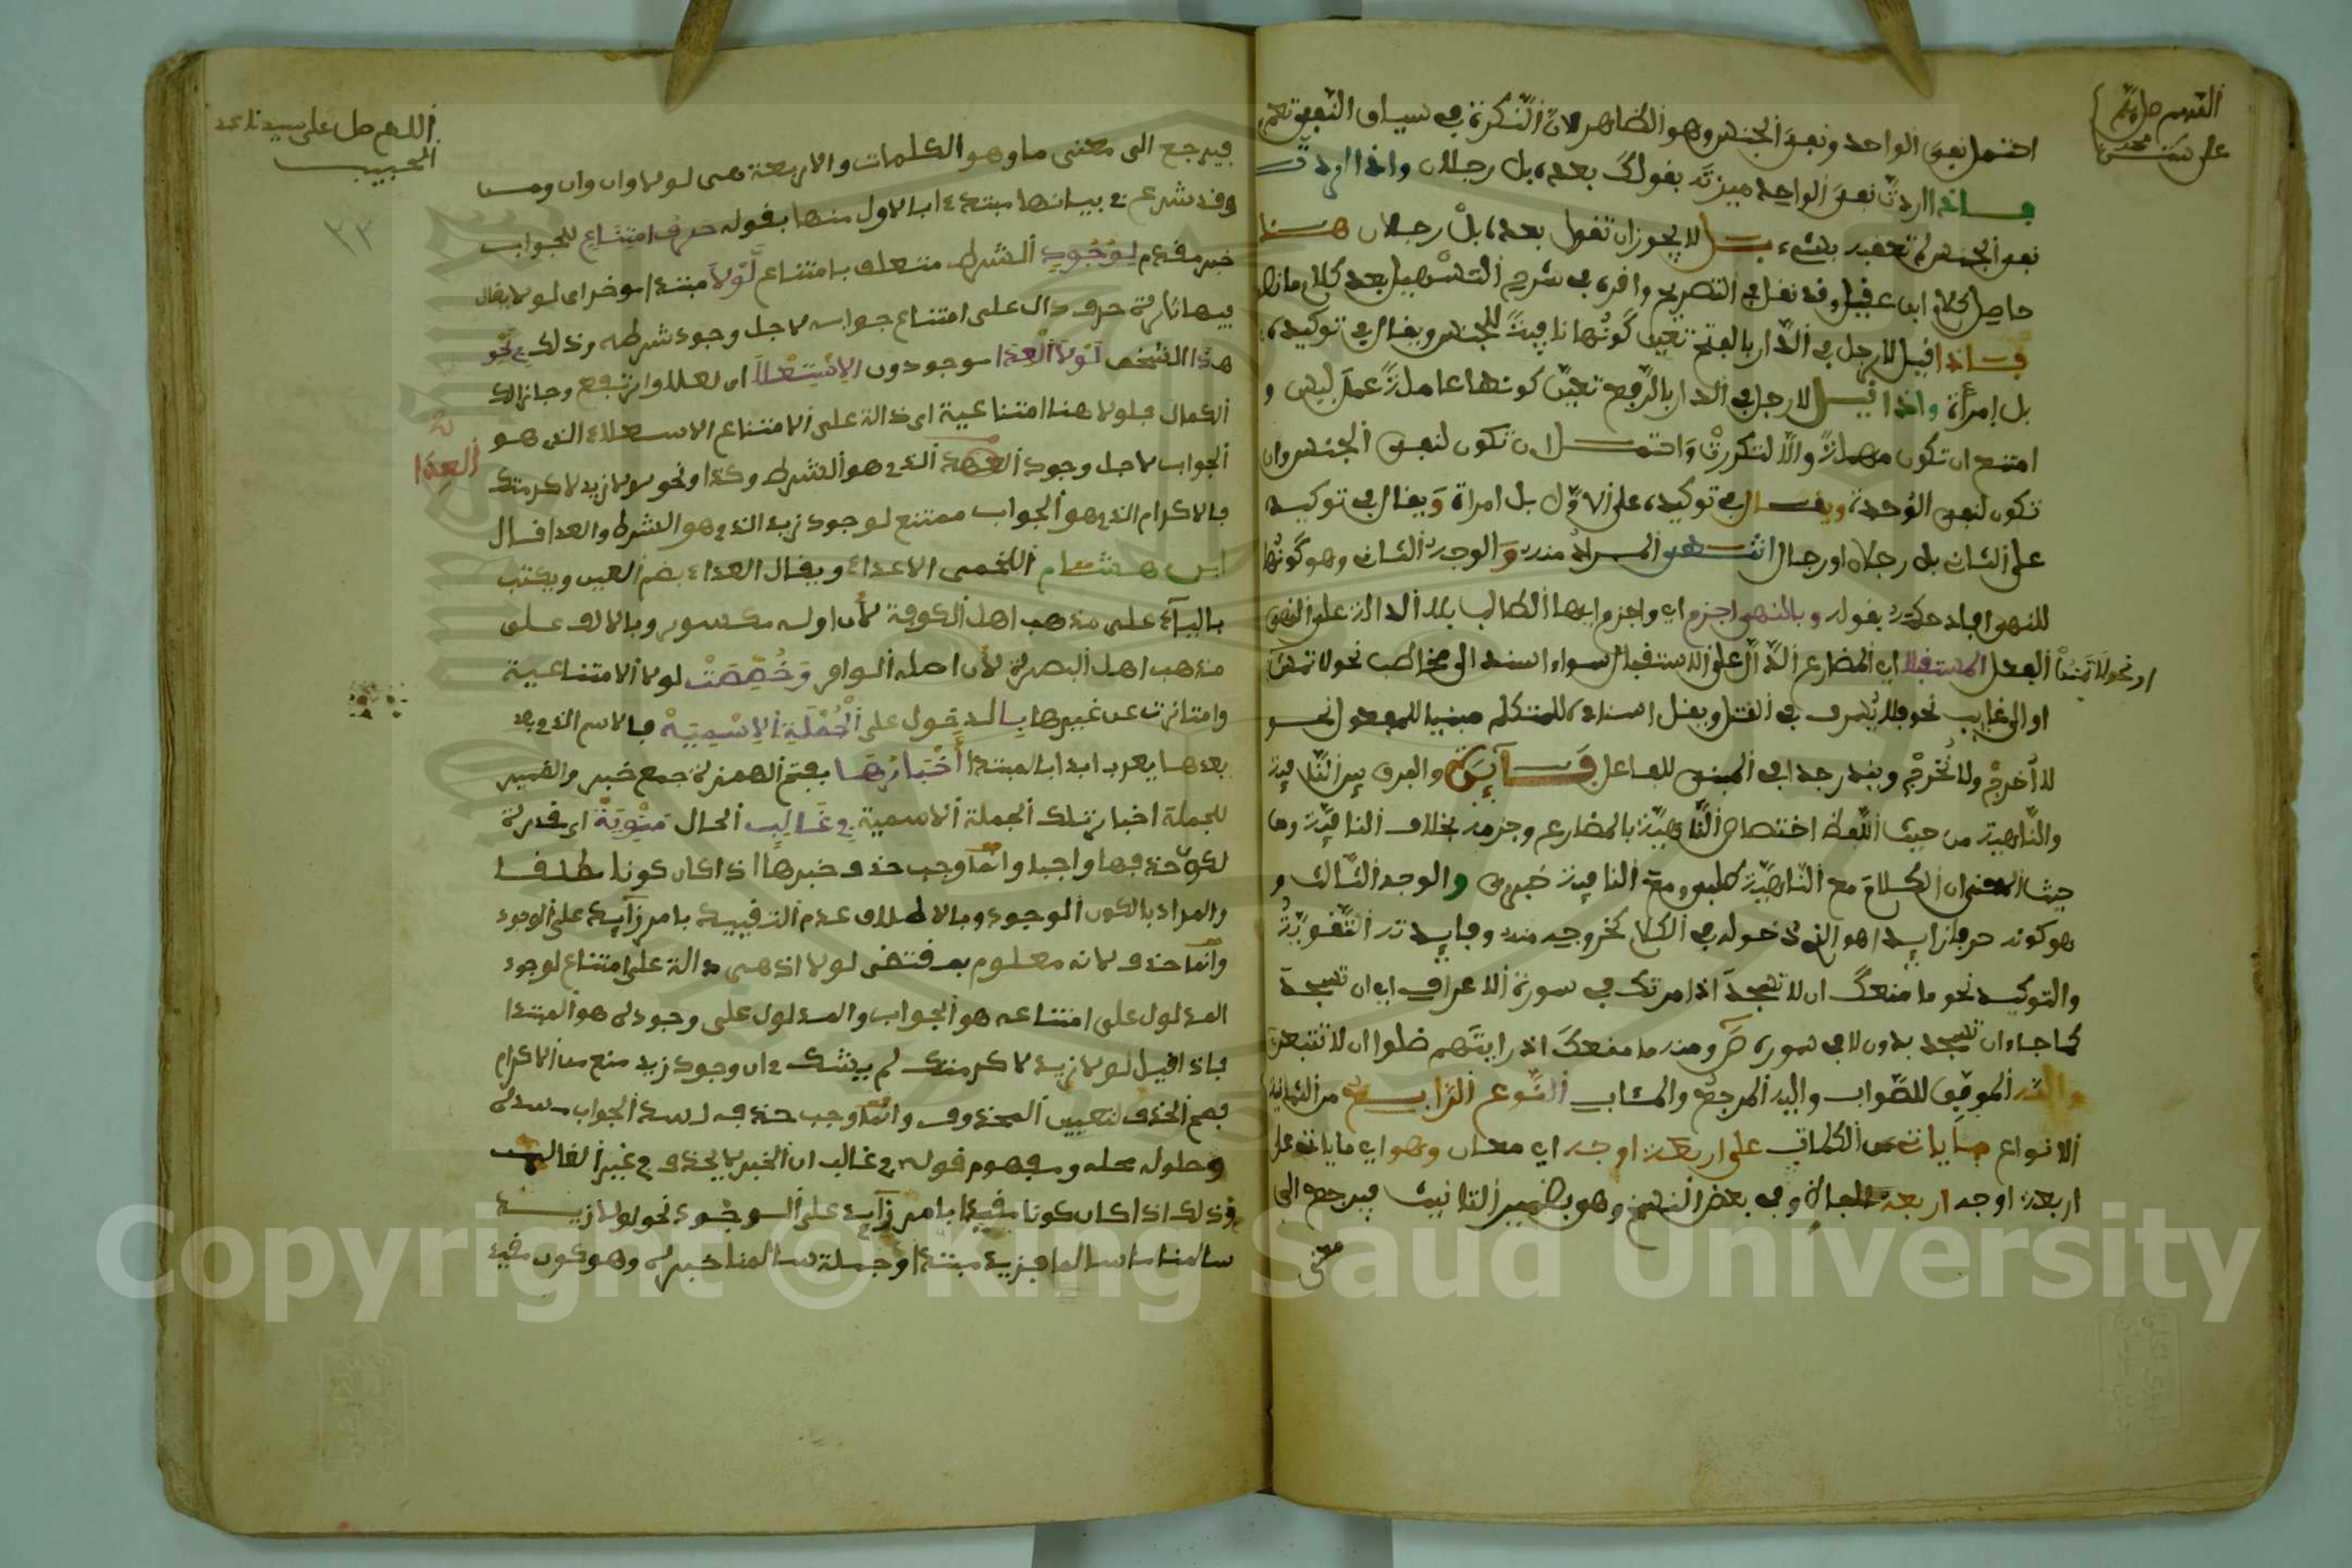 اللهم صل
على سيدنا محمد
احتمل نفي الواحد ونفي الجنس وهو الظاهر لان النكرة في سياق النفي تعم
فاذا اردت نفي الواحد ميزته بقولك بعده بل رجلان واذا اردت
نفي الجنس لم تعقبه بشيء بل لا يجوز ان تقول بعده بل رجلان هذا
حاصل كلام ابن عقيل وقد نقل في التصريح واقره في شرح التسهيل بعد كلام ما نصه
فاذا قيل لا رجل في الدار بالفتح تعين كونها نافية للجنس ويقال في توكيده
بل امرأة واذا قيل لا رجل في الدار بالرفع تعين كونها عاملة عمل ليس و
امتنع ان تكون مهملة والا لتكررت واحتمل ان تكون لنفي الجنس وان
تكون لنفي الوحدة ويقال في توكيده على الاول بل امراة ويقال في توكيده
على الثاني بل رجلان او رجال انتهى المراد منه والوجه الثاني وهو كونها
للنهي افاد حكمه بقوله وبالنهي اجزم اي واجزم ايها الطالب بلا الدالة على النهي
الفعل المستقبلا اي المضارع الدال على الاستقبال سواء اسند الى مخاطب نحو لا تمنن
او الى غايب نحو فلا يسرف في القتل ويقل اسناده للمتكلم مبنيا للمفعول نحو
لا أخرج ولا نخرج ويندر جدا في المبني للفاعل فايدة والفرق بين النافية
والناهية من حيث اللفظ اختصاص الناهية بالمضارع وجزمه بخلاف النافية ومن
حيث المعنى ان الكلام مع الناهية طلبي ومع النافية خبري والوجه الثالث و
هو كونه حرفا زايدا هو الذي دخوله في الكلام كخروجه منه وفايدته التقوية
والتوكيد نحو ما منعك ان لا تسجد اذ امرتك في سورة الاعراف اي ان تسجد
كما جاء ان تسجد بدون لا في سورة ص ومنه ما منعك اذ رايتهم ضلوا ان لا تتبعن
والله الموفق للصواب واليه المرجع والمئاب النوع الرابع من الثمانية
الانواع ما ياتي من الكلمات على اربعة اوجه اي معان وهو اي ما ياتي على
اربعة اوجه اربعة وفي بعض النسخ وهي بضمير التانيث فيرجع الى
معنى
اللهم صل على سيدنا محمد
الحبيب
٢٣
فيرجع الى معنى ما وهو الكلمات والاربعة هي لولا وان وان ومن
وقد شرع في بيانها مبتدءا بالاول منها بقوله حرف امتناع للجواب
خبر مقدم لوجود الشرط متعلق بامتناع لولا مبتدا موخر اي لولا يقال
فيها تارة حرف دال على امتناع جوابه لاجل وجود شرطه وذلك في نحو
هذا الشخص لولا العدا موجودون لاستعلا اي لعلا وارتفع وحاز الى
الكمال فلولا هنا امتناعية اي دالة على امتناع الاستعلاء الذي هو
العدا
الجواب لاجل وجود العدا الذي هو الشرط وكذا ونحو لولا زيد لاكرمتك
فالاكرام الذي هو الجواب ممتنع لوجود زيد الذي هو الشرط والعدا قال
ابن هشام اللخمي الاعداء ويقال العداء بضم العين ويكتب
بالياء على مذهب اهل الكوفة لان اوله مكسور وبالالف على
مذهب اهل البصرة لان اصله الواو وخصصت لولا الامتناعية
وامتازت عن غيرها بالدخول على الجملة الاسمية فالاسم الذي بعد
بعدها يعرب ابدا بالمبتدا أخبارها بفتح الهمزة جمع خبر والضمير
للجملة اخبار تلك الجملة الاسمية في غالب الحال منوية اي مقدرة
لكون حذفها واجبا وانما وجب حذف خبرها اذا كان كونا مطلقا
والمراد بالكون الوجود وبالاطلاق عدم التقييد بامر زايد على الوجود
وانما حذف لانه معلوم بمقتضى لولا اذ هي دالة على امتناع لوجود
المدلول على امتناعه هو الجواب والمدلول على وجوده هو المبتدا
فاذا قيل لولا زيد لاكرمتك لم يشك في ان وجود زيد منع من الاكرام
فصح الحذف لتعيين المحذوف وانما وجب حذفه لسد الجواب مسده
وحلوله محله ومفهوم قوله في غالب ان الخبر لا يحذف في غير الغالب
وذلك اذا كان كونا مقيدا بامر زايد على الوجود نحو لولا زيد
سالمنا ما سالم فزيد مبتدا وجملة سالمنا خبره وهو كون مقيد